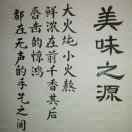 美味之源
大火炖小火熬
鲜浓在前千香其后
唇齿的惊鸿
都在无声的手艺之间